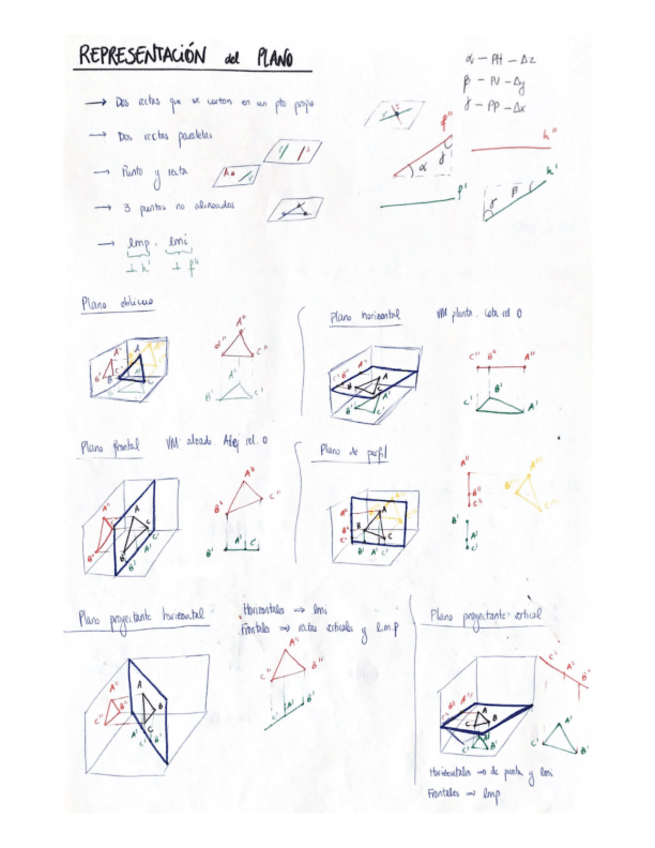 REPRESENTACIÓN del PLANO
→ Dos rectas que se cortan en un pto propio
→ Dos rectas paralelas
→ Punto y recta
→ 3 puntos no alineados
→ lmp. lmi
⊥ h' ⊥ f''
α — PH — Δz
β — PV — Δy
γ — PP — Δx
f'' h''
α γ
f' h'
γ β
Plano oblicuo
A'' B'' C'' A B C
A'' B'' C''
A' B' C'
Plano horizontal VM planta. Cota rel. 0
C'' B'' A'' A B C B' C' A'
C'' B'' A''
C' B' A'
Plano frontal VM alzado. Alej rel. 0
A'' B'' C'' A B C A' B' C'
A'' B'' C''
B' A' C'
Plano de perfil
A'' B'' C'' A B C B' A' C'
A'' B'' C''
A''' B''' C'''
B' A' C'
Plano proyectante horizontal
Horizontales ⇒ lmi
Frontales ⇒ rectas verticales y l.m.p
A'' B'' C'' A B C A' C' B'
A'' B'' C''
C' A' B'
Plano proyectante vertical
C'' A'' B''
A B C A' B' C'
A' C' B'
Horizontales ⇒ de punta y lmi
Frontales ⇒ lmp